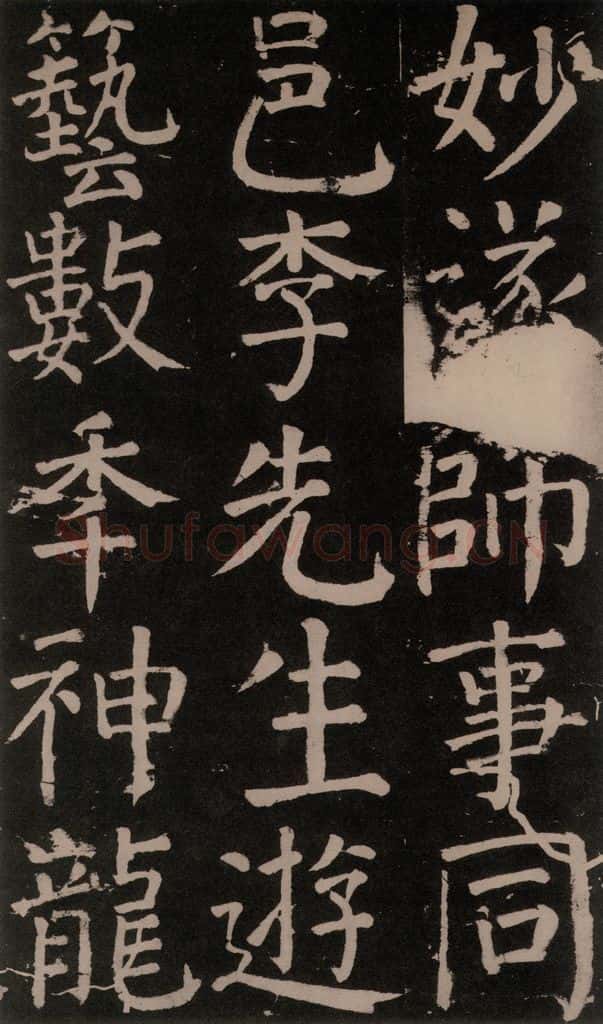 妙遂師事同
邑李先生遊
藝數秊神龍
Shufawang.CN